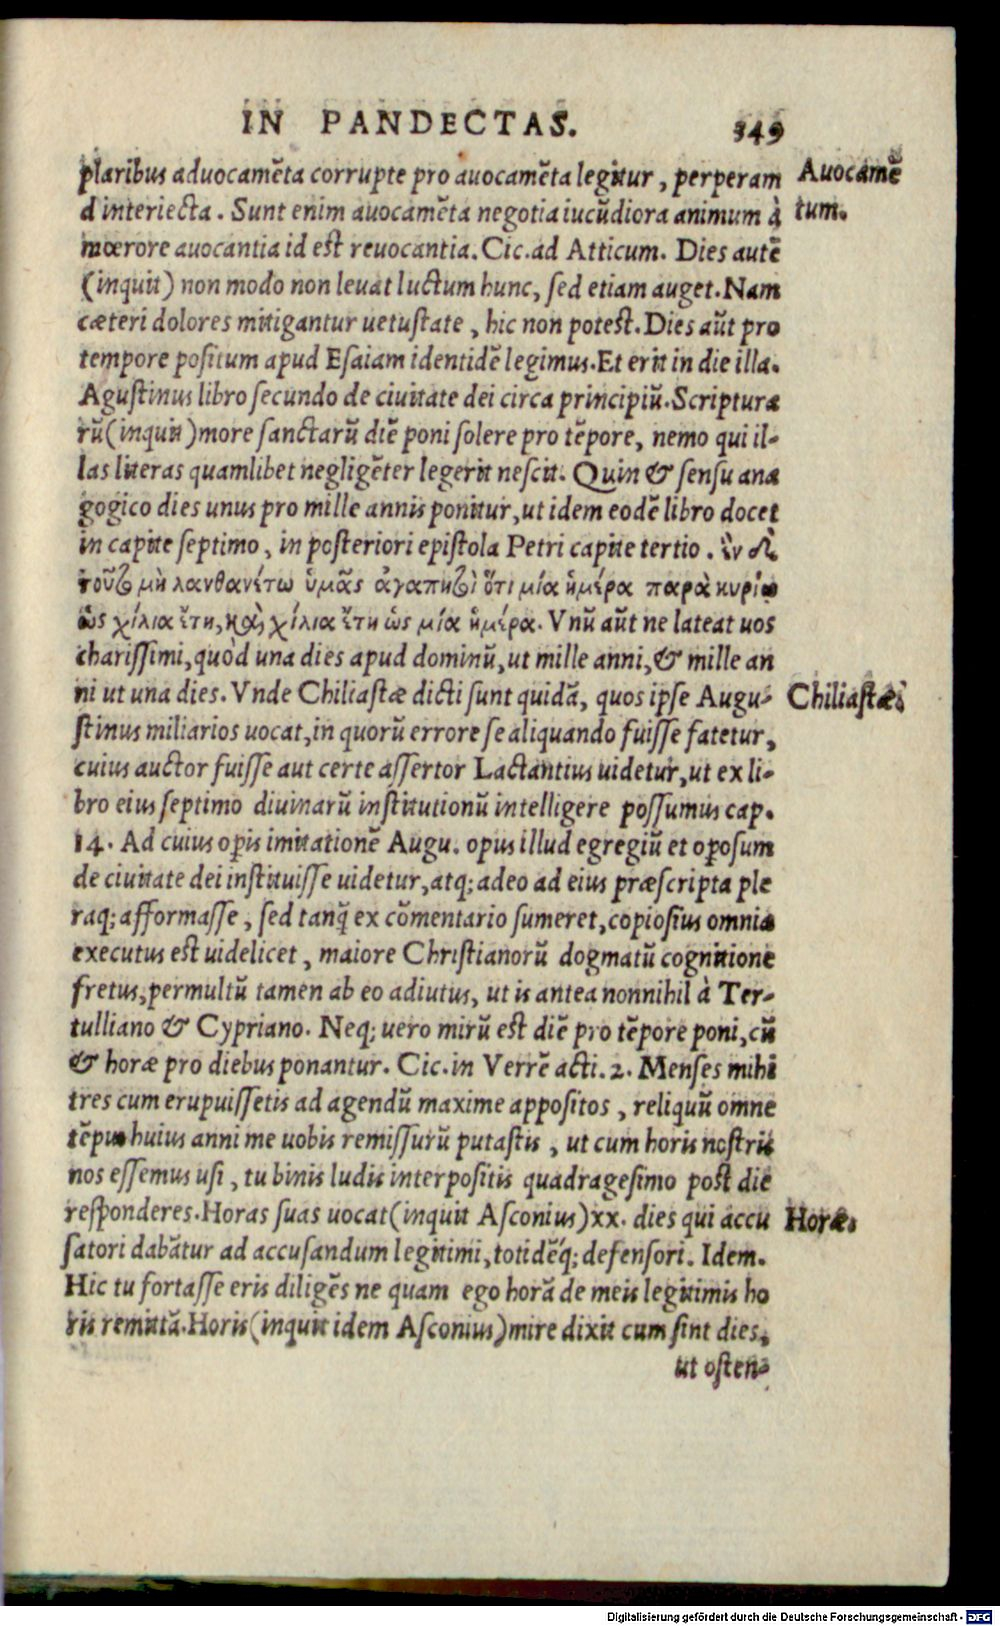 IN PANDECTAS. 349
plaribus aduocamēta corrupte pro auocamēta legitur, perperam Auocamē
d interiecta. Sunt enim auocamēta negotia iucūdiora animum à tum.
mœrore auocantia id est reuocantia. Cic. ad Atticum. Dies autē
(inquit) non modo non leuat luctum hunc, sed etiam auget. Nam
cæteri dolores mitigantur uetustate, hic non potest. Dies aūt pro
tempore positum apud Esaiam identidē legimus. Et erit in die illa.
Agustinus libro secundo de ciuitate dei circa principiū. Scripturæ
rū (inquit) more sanctarū diē poni solere pro tēpore, nemo qui il-
las literas quamlibet negligēter legerit nescit. Quin & sensu ana
gogico dies unus pro mille annis ponitur, ut idem eodē libro docet
in capite septimo, in posteriori epistola Petri capite tertio. ἓν δὲ
τοῦτο μὴ λανθανέτω ὑμᾶς ἀγαπητοὶ ὅτι μία ἡμέρα παρὰ κυρίῳ
ὡς χίλια ἔτη, καὶ χίλια ἔτη ὡς μία ἡμέρα. Vnū aūt ne lateat uos
charissimi, quòd una dies apud dominū, ut mille anni, & mille an
ni ut una dies. Vnde Chiliastæ dicti sunt quidā, quos ipse Augu- Chiliastæ.
stinus miliarios uocat, in quorū errore se aliquando fuisse fatetur,
cuius auctor fuisse aut certe assertor Lactantius uidetur, ut ex li-
bro eius septimo diuinarū institutionū intelligere possumus cap.
14. Ad cuius oꝑis imitationē Augu. opus illud egregiū et oꝑosum
de ciuitate dei instituisse uidetur, atq; adeo ad eius præscripta ple
raq; afformasse, sed tanq̄ ex cōmentario sumeret, copiosius omnia
executus est uidelicet, maiore Christianorū dogmatū cognitione
fretus, permultū tamen ab eo adiutus, ut is antea nonnihil à Ter-
tulliano & Cypriano. Neq; uero mirū est diē pro tēpore poni, cū
& horæ pro diebus ponantur. Cic. in Verrē acti. 2. Menses mihi
tres cum erupuissetis ad agendū maxime appositos, reliquū omne
tēpus huius anni me uobis remissurū putastis, ut cum horis nostris
nos essemus usi, tu binis ludis interpositis quadragesimo post die
responderes. Horas suas uocat (inquit Asconius) xx. dies qui accu Horæ.
satori dabātur ad accusandum legitimi, totidēq́; defensori. Idem.
Hic tu fortasse eris diligēs ne quam ego horā de meis legitimis ho
ris remittā. Horis (inquit idem Asconius) mire dixit cum sint dies,
ut osten-
Digitalisierung gefördert durch die Deutsche Forschungsgemeinschaft - DFG